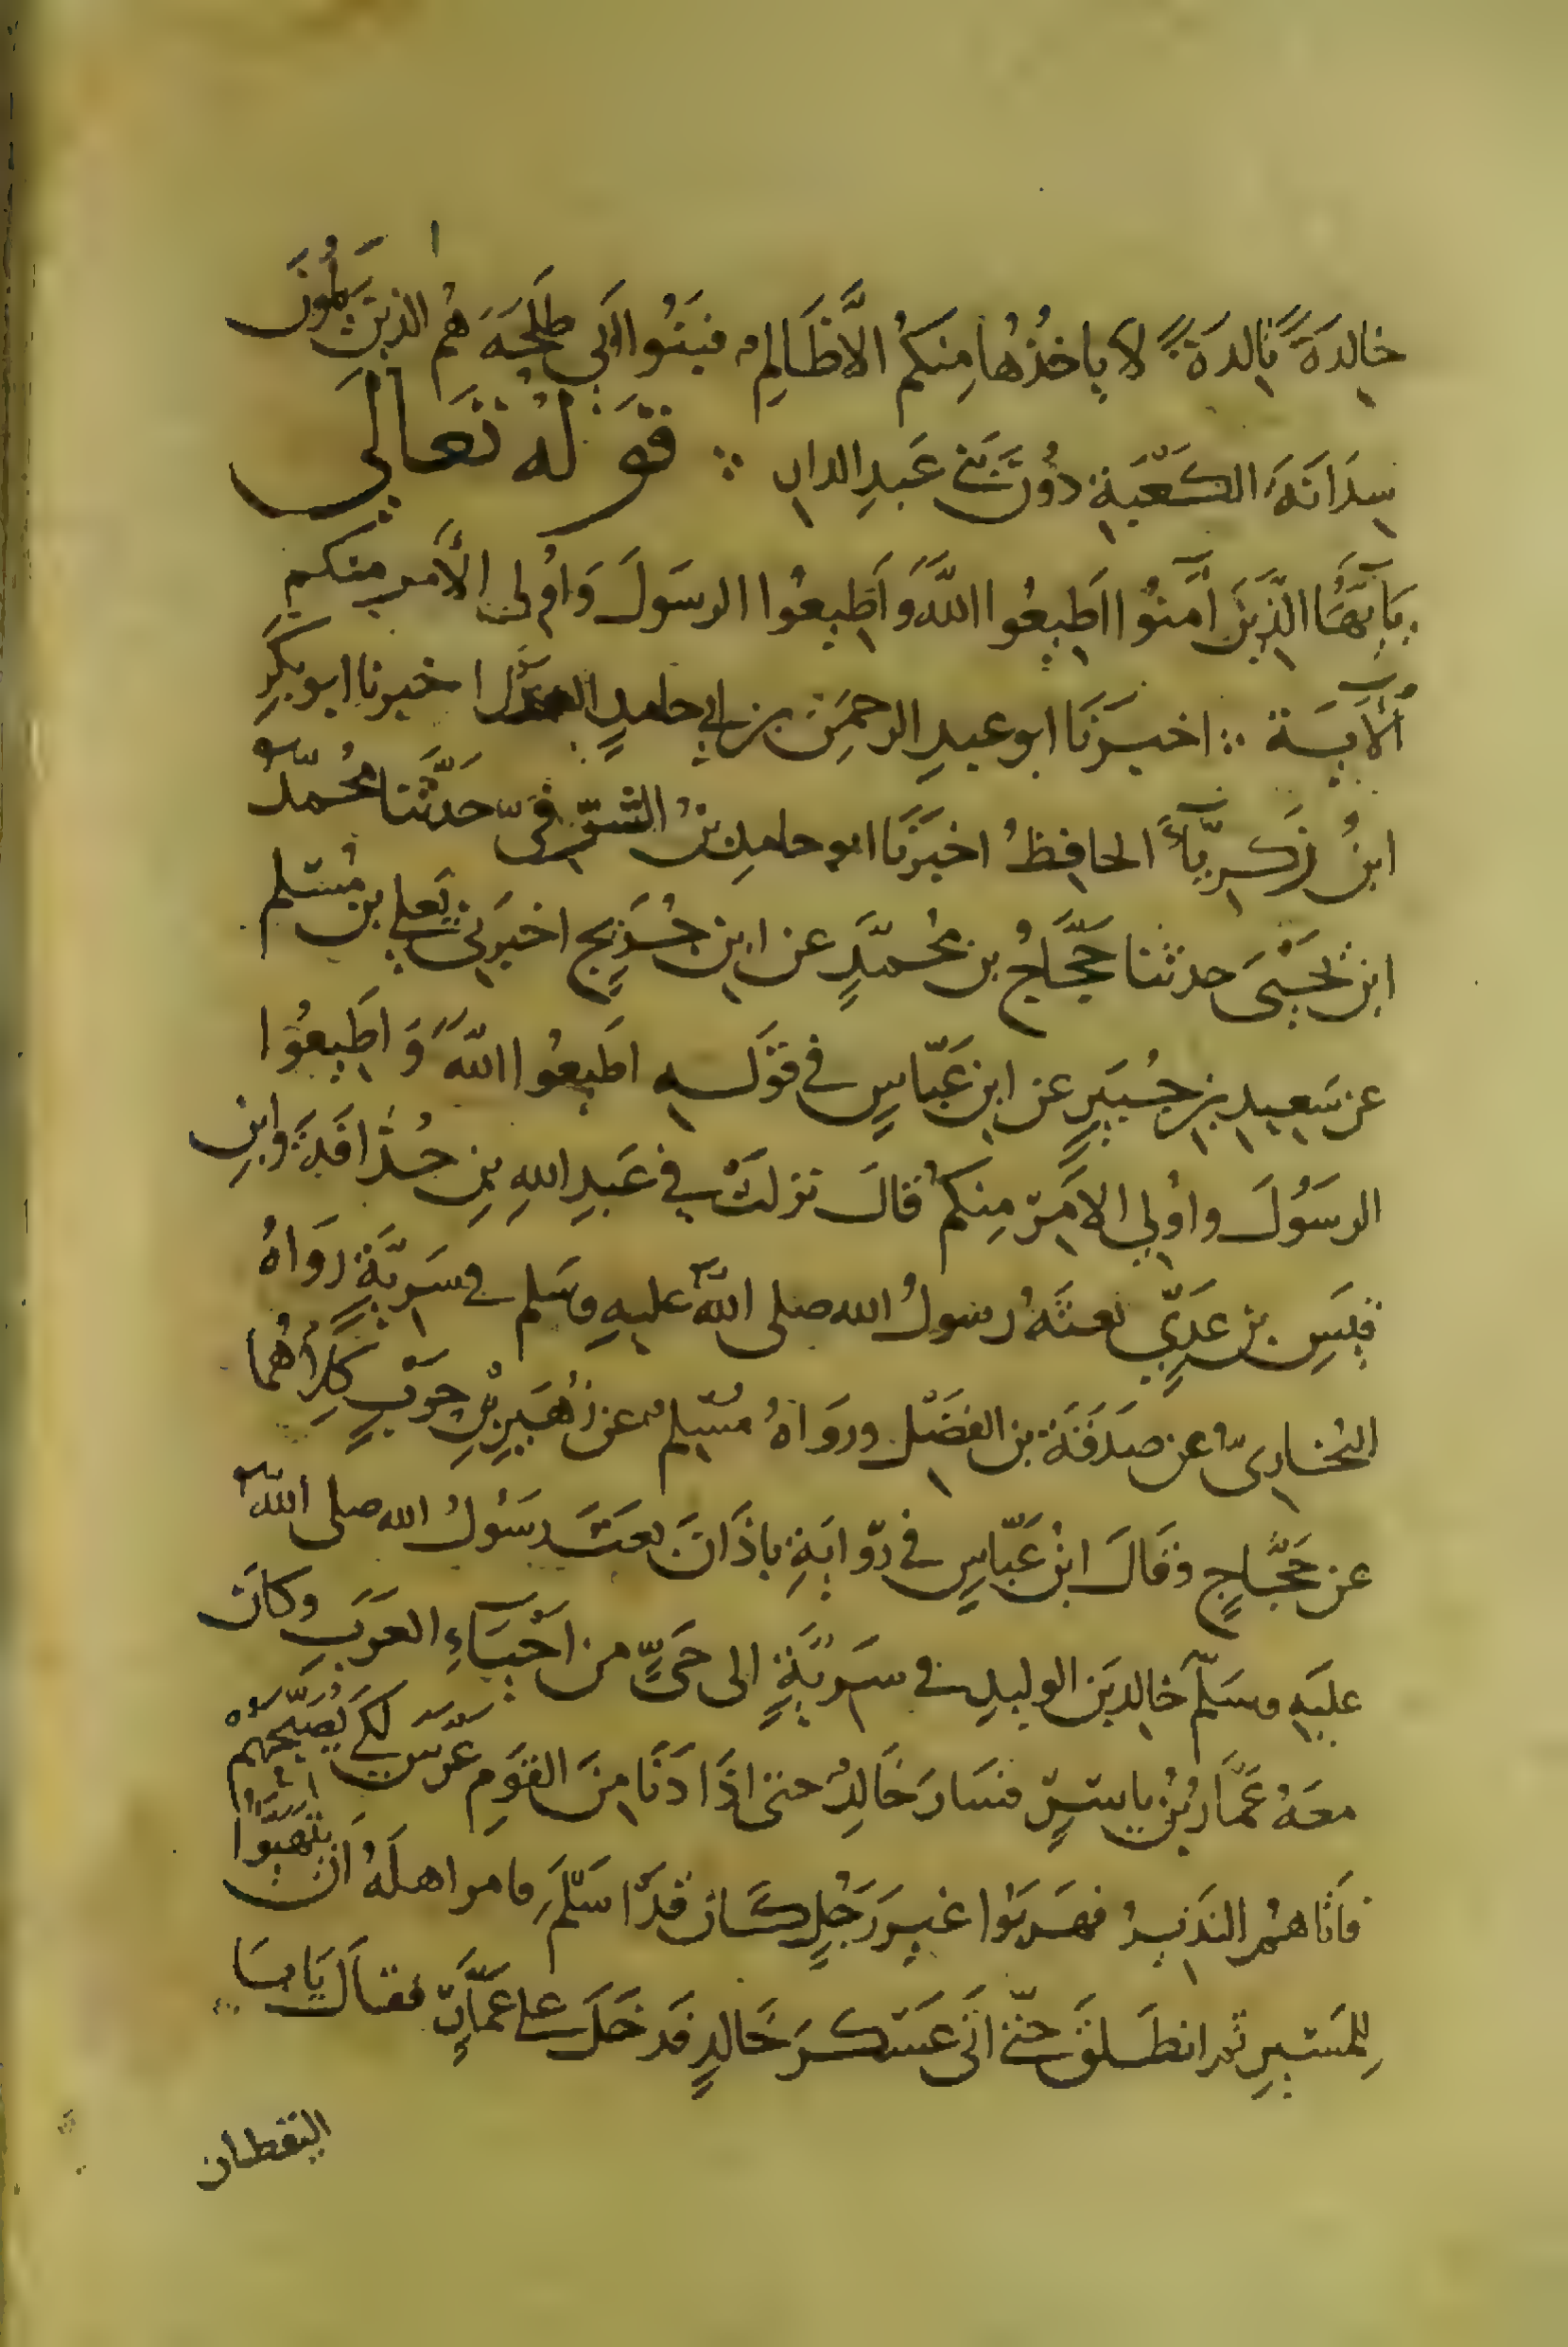 خالِدَةً تالدةً لا ياخذُها مِنكُم الَّا ظَالِم فبَنُوا ابي طَلْحَةَ هُم الذين يَلُونَ
سِدَانَةَ الكَعْبَةِ دُونَ بَنِي عَبدِ الدارِ ∴ قَوْلُهُ تَعَالَى
يَا يُّهَا الَّذِينَ آمَنُوا اَطِيعُوا اللَّهَ وَاَطِيعُوا الرسَولَ وَاُولِى الأَمرِ مِنكم
الآيَة ∴ اخبرَنَا ابو عبدِ الرحمَنِ بن ابي حامدٍ العدل اخبرنا ابو بكرِ
ابنُ زَكرِيَّآءَ الحافِظُ اخبَرَنَا ابو حامدِ بنُ الشَّرْقيّ حَدَّثَنا مُحُمّدُ
ابن يَحْيَى حدثنا حَجَّاجُ بن مُحُمّدٍ عن ابنِ جُرَيجٍ اخبرَنِي يَعلى بن مُسْلم
عن سَعِيدِ بنِ جُبَيرٍ عن ابنِ عَبّاسٍ في قَولِهِ اَطِيعُوا اللَّهَ وَاَطِيعُوا
الرسَوُلَ واُوِلي الاَمْرِ مِنكُم قالَ نزلَتْ في عَبدِ اللهِ بنِ حُذَافَةَ بنِ
قيَسِ بنِ عَدِيٍّ بعثَهُ رسولُ الله صلى اللهُ عليهِ وسَلم في سَرِيَّةٍ رَوَاهُ
البُخارِىُّ عن صدَقَةَ بن الفَضْل ورَوَاهُ مُسْلِمٌ عن زُهَيرِ بْنِ حَرْبٍ كِلَاهُمَا
عن حَجَّاجٍ وقالَ ابنُ عَبّاسٍ في رِوايَةِ باذَانَ بعَثَ رسَولُ الله صلى اللهُ
عليَهِ وسَلَّم خالدَ بن الوليدِ في سَريَّةٍ الى حَىٍّ من اَحْيَاءِ العرَبِ وكانَ
معَهُ عَمَّارُ بنُ ياسِرٍ فسَارَ خَالِدٌ حتى اذَا دَنَا مِنَ القَوِمِ عَرَّسَ لكَي يُصَبِّحَهُم
فَاَتَاهُم النَذيرُ فهَرَبُوا غيرَ رَجُلٍ كَان قَد اَسْلَمَ فامر اهلَهُ ان يتَهَيَّؤُا
لِلمَسِيرِ ثم انطَلقَ حتّى اتَى عَسْكرَ خَالدٍ فَدَخَلَ على عَمَّارٍ فقالَ يَا بَا
اليقظان